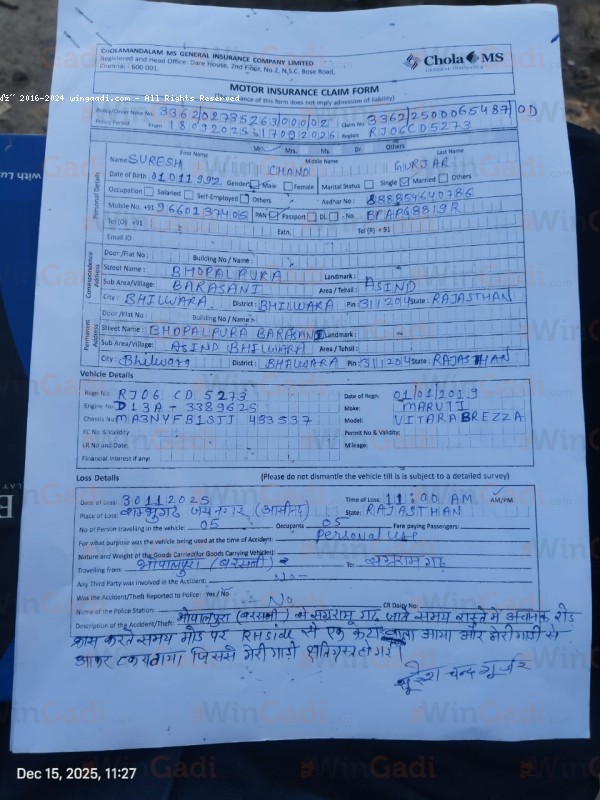 CHOLAMANDALAM MS GENERAL INSURANCE COMPANY LIMITED
Registered and Head Office: Dare House, 2nd Floor, No.2, N.S.C. Bose Road,
Chennai - 600 001.
Chola MS
GENERAL INSURANCE
2016-2024 wingaadi.com - All Rights Reserved
MOTOR INSURANCE CLAIM FORM
(Issuance of this form does not imply admission of liability)
Policy/Cover Note No. 3362/02735263/000/02 Claim No. 3362/2500065487/OD
Policy Period From 18092025 17092026 Region RJ06CD5273
Mr. Mrs. Ms. Dr. Others
First Name Middle Name Last Name
Name SURESH CHAND GURJAR
Date of Birth 01011992 Gender Male Female Marital Status Single Married Others
Occupation Salaried Self-Employed Others Aadhar No: 888854640786
Mobile No. +91 9660137405 PAN Passport DL - No. BPAPG8819R
Tel (O) +91 Extn. Tel (R) +91
Email ID
Personal Details
Door /Flat No : Building No / Name :
Street Name : BHOPALPURA Landmark :
Sub Area/Village: BARASANI Area / Tehsil : ASIND
City : BHILWARA District : BHILWARA Pin 311204 State : RAJASTHAN
Correspondence Address
Door /Flat No : Building No / Name :
Street Name : BHOPALPURA BARASANI Landmark :
Sub Area/Village: ASIND BHILWARA Area / Tehsil :
City : Bhilwara District : BHILWARA Pin 311204 State : RAJASTHAN
Permanent Address
Vehicle Details
Regn No RJ06 CD 5273 Date of Regn: 01/01/2019
Engine No D13A-3389625 Make: MARUTI
Chassis No MA3NYFB1SJJ 493537 Model: VITARA BREZZA
FC No & Validity Permit No & Validity:
LR No and Date: Mileage:
Financial Interest if any:
Loss Details (Please do not dismantle the vehicle till is is subject to a detailed survey)
Date of Loss: 30112025 Time of Loss: 11:00 AM AM/PM
Place of Loss: जयनगर State: RAJASTHAN
No of Person travelling in the vehicle: 05 Occupants 05 Fare paying Passengers:
For what purpose was the vehicle being used at the time of Accident: Personal use
Nature and Weight of the Goods Carried(for Goods Carrying Vehicle):
Travelling from: भोपालपुरा (बरसनी) To:
Any Third Party was involved in the Accident: No-
Was the Accident/Theft Reported to Police : Yes / No No
Name of the Police Station: CR Dairy No:
Description of the Accident/Theft: भोपालपुरा (बरसनी) से सग्रामगढ़ जाते समय रास्ते में अचानक रोड
क्रास करते समय मोड पर RHSide से एक वाला आया और मेरी गाड़ी से
आकर टकरा गया जिससे मेरी गाड़ी क्षतिग्रस्त हो गई।
सुरेश चन्द गुर्जर
WinGadi
Dec 15, 2025, 11:27